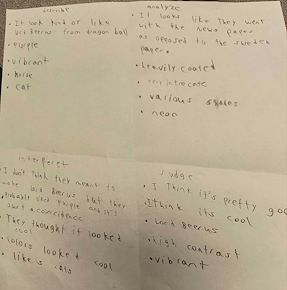 describe
• It looks kind of like
lord beerus from dragon ball
• purple
• vibrant
• horse
• cat
analyze
• It looks like they went
with the news paper
as opposed to the
paper.
• Heavily coated
• very intricate
• various
• neon
interperet
• I don't think they meant to
make lord Beerus but they
probably used purple and it's
just a coincidence
• They thought it looked
cool
• colors looked cool
• likes cats
Judge
• I think it's pretty good
• I think its cool
• Lord Beerus
• high contrast
• vibrant